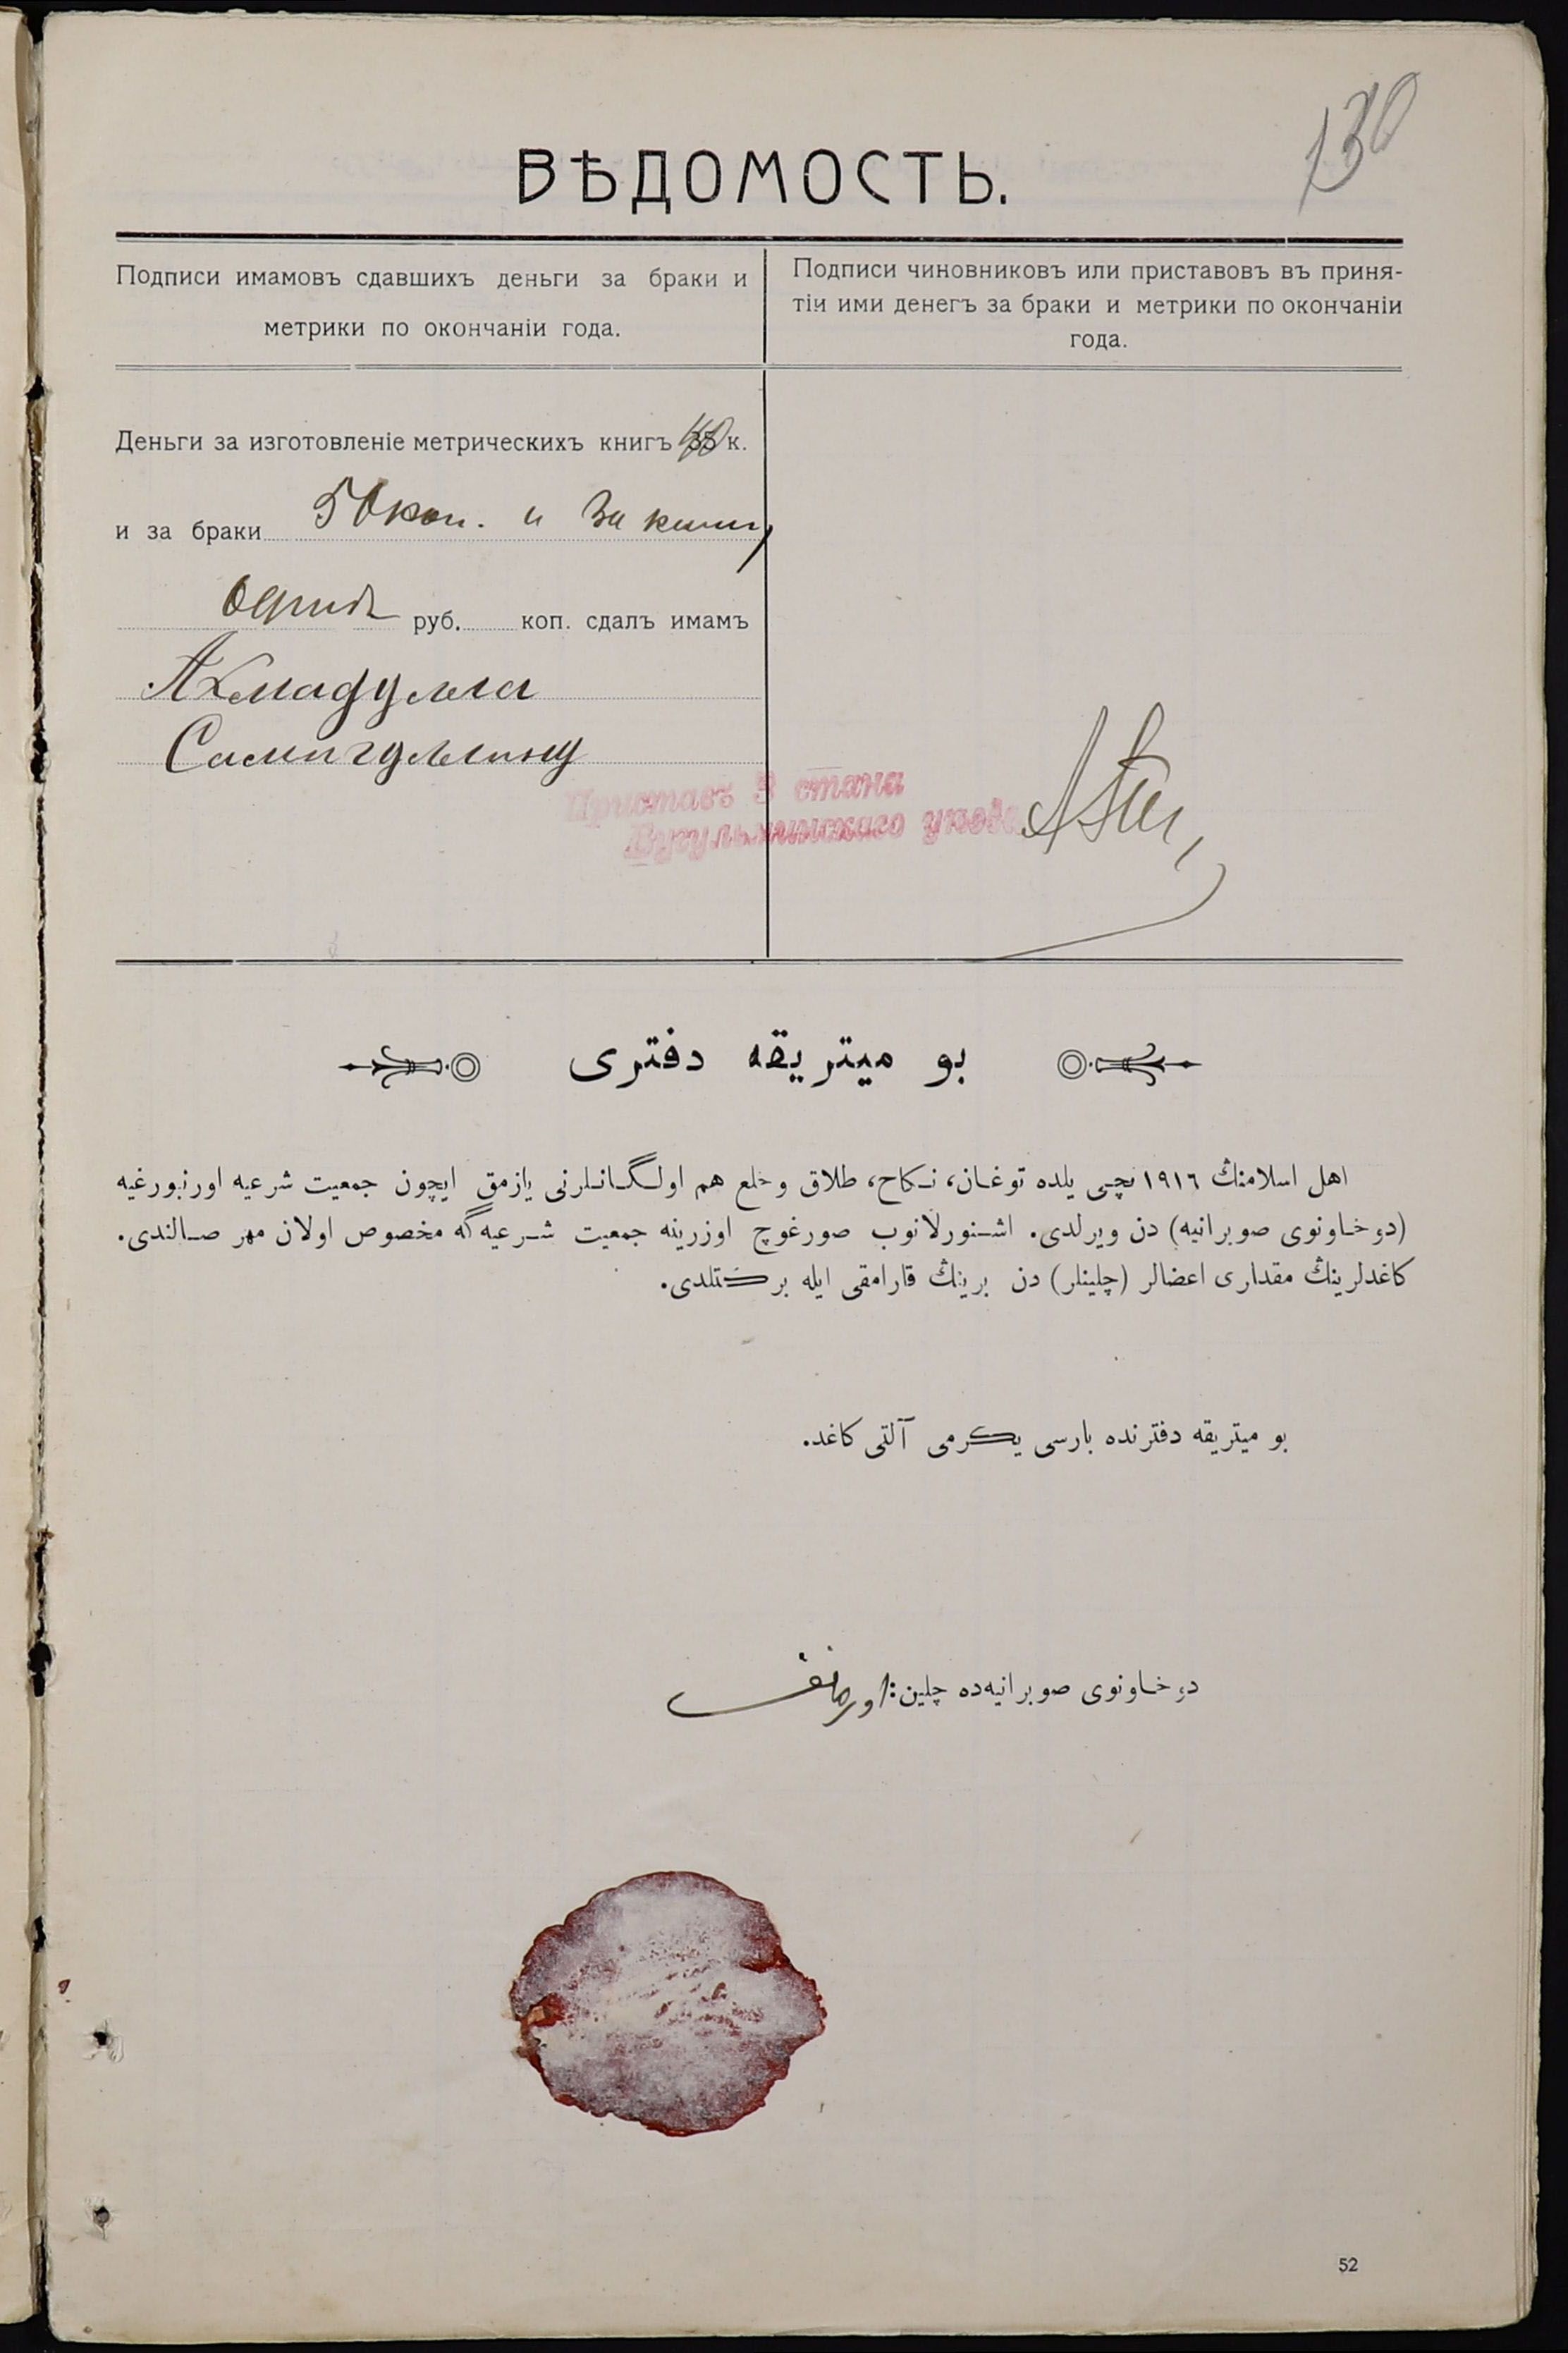 130
ВѢДОМОСТЬ.
Подписи имамовъ сдавшихъ деньги за браки и
метрики по окончаніи года.
Подписи чиновниковъ или приставовъ въ приня-
тіи ими денегъ за браки и метрики по окончаніи
года.
Деньги за изготовленіе метрическихъ книгъ 40 к.
и за браки 50 коп. и за книг
одинъ руб. коп. сдалъ имамъ
Ахмадулла
Самигуллинъ
Приставъ 3 стана
Бугульминскаго уѣзда
بو ميتريقه دفترى
اهل اسلامنڭ ١٩١٦ نچى يلده توغان، نكاح، طلاق و خلع هم اولگانلرنى يازمق ايچون جمعيت شرعيه اورنبورغيه
(دوخاونوى صوبرانيه) دن ويرلدى. اشنورلانوب صورغوچ اوزرينه جمعيت شرعيه گه مخصوص اولان مهر صالندى.
كاغدلرينڭ مقدارى اعضالر (چلينلر) دن برينڭ قارامقى ايله بركتلدى.
بو ميتريقه دفترنده بارسى يكرمى آلتى كاغد.
دوخاونوى صوبرانيه‌ده چلين:
52